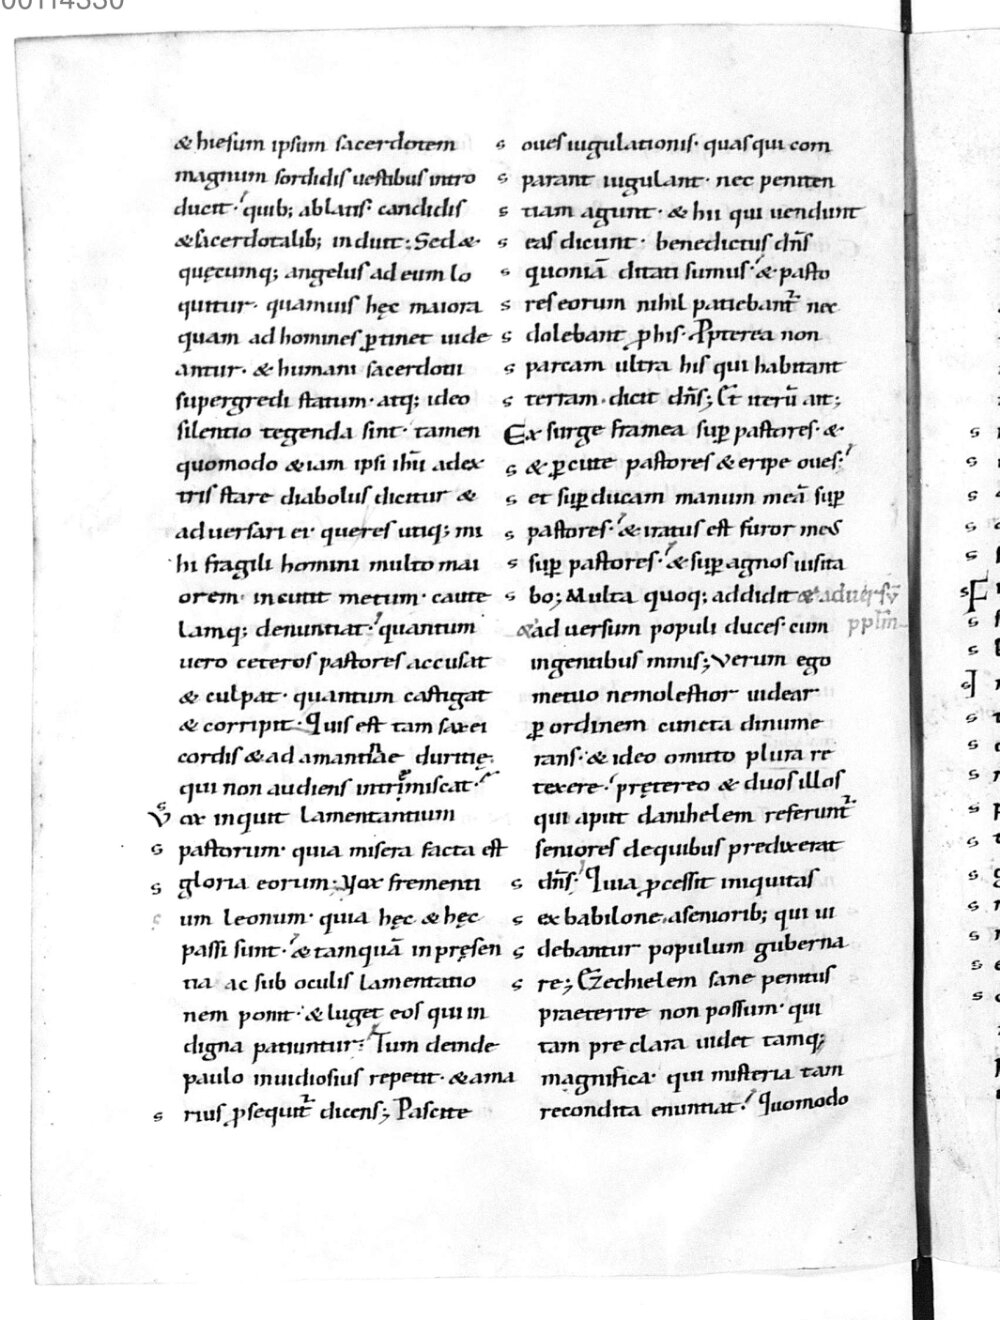 & hiesum ipsum sacerdotem
magnum sordidis uestibus intro
ducit· quib; ablatis· candidis
& sacerdotalib; induit: Sed &
quęcumq; angelus ad eum lo
quitur· quamuis hęc maiora
quam ad homines ꝑtinet uide
antur· & humani sacerdotii
supergredi statum· atq; ideo
silentio tegenda sint· tamen
quomodo &iam ipsi ihū adex
tris stare diabolus dicitur &
aduersari ei· queres utiq; mi
hi fragili homini multo mai
orem incutit metum· caute
lamq; denuntiat· quantum
uero ceteros pastores accusat
& culpat· quantum castigat
& corripit· Quis est tam saxei
cordis & adamantiae duritię
qui non audiens intremiscat·
Vox inquit lamentantium
s pastorum· quia misera facta est
s gloria eorum; Vox frementi
s um leonum· quia hęc & hęc
passi sunt· & tamquā in pręsen
tia ac sub oculis lamentatio
nem ponit· & luget eos qui in
digna patiuntur· Tum deinde
paulo inuidiosius repetit· & ama
s rius ꝓsequit̃ dicens; Pascite
s oues iugulationis· quas qui com
s parant iugulant· nec peniten
s tiam agunt· & hii qui uendunt
s eas dicunt· benedictus dn̄s
s quoniā ditati sumus· & pasto
s res eorum nihil patiebant̃ nec
s dolebant ꝓ his· Ꝓpterea non
s parcam ultra his qui habitant
s terram· dicit dn̄s; Et iterū ait;
Exsurge framea suꝑ pastores· &
s & ꝑcute pastores & eripe oues·
s et suꝑducam manum meā suꝑ
s pastores· & iratus est furor meus
s suꝑ pastores· & suꝑ agnos uisita
s bo; Multa quoq; addidit & aduersū
& aduersum populi duces· cum pplm̄
ingentibus minis; Verum ego
metuo ne molestior uidear
ꝑ ordinem cuncta dinume
rans· & ideo omitto plura re
texere· prętereo & duos illos
qui aput danihelem referunt̃
seniores de quibus predixerat
s dn̄s· Quia ꝓcessit iniquitas
s ex babilone, a seniorib; qui ui
s debantur populum guberna
s re; Ezechielem sane penitus
praeterire non possum· qui
tam preclara uidet tamq;
magnifica· qui misteria tam
recondita enuntiat· Quomodo